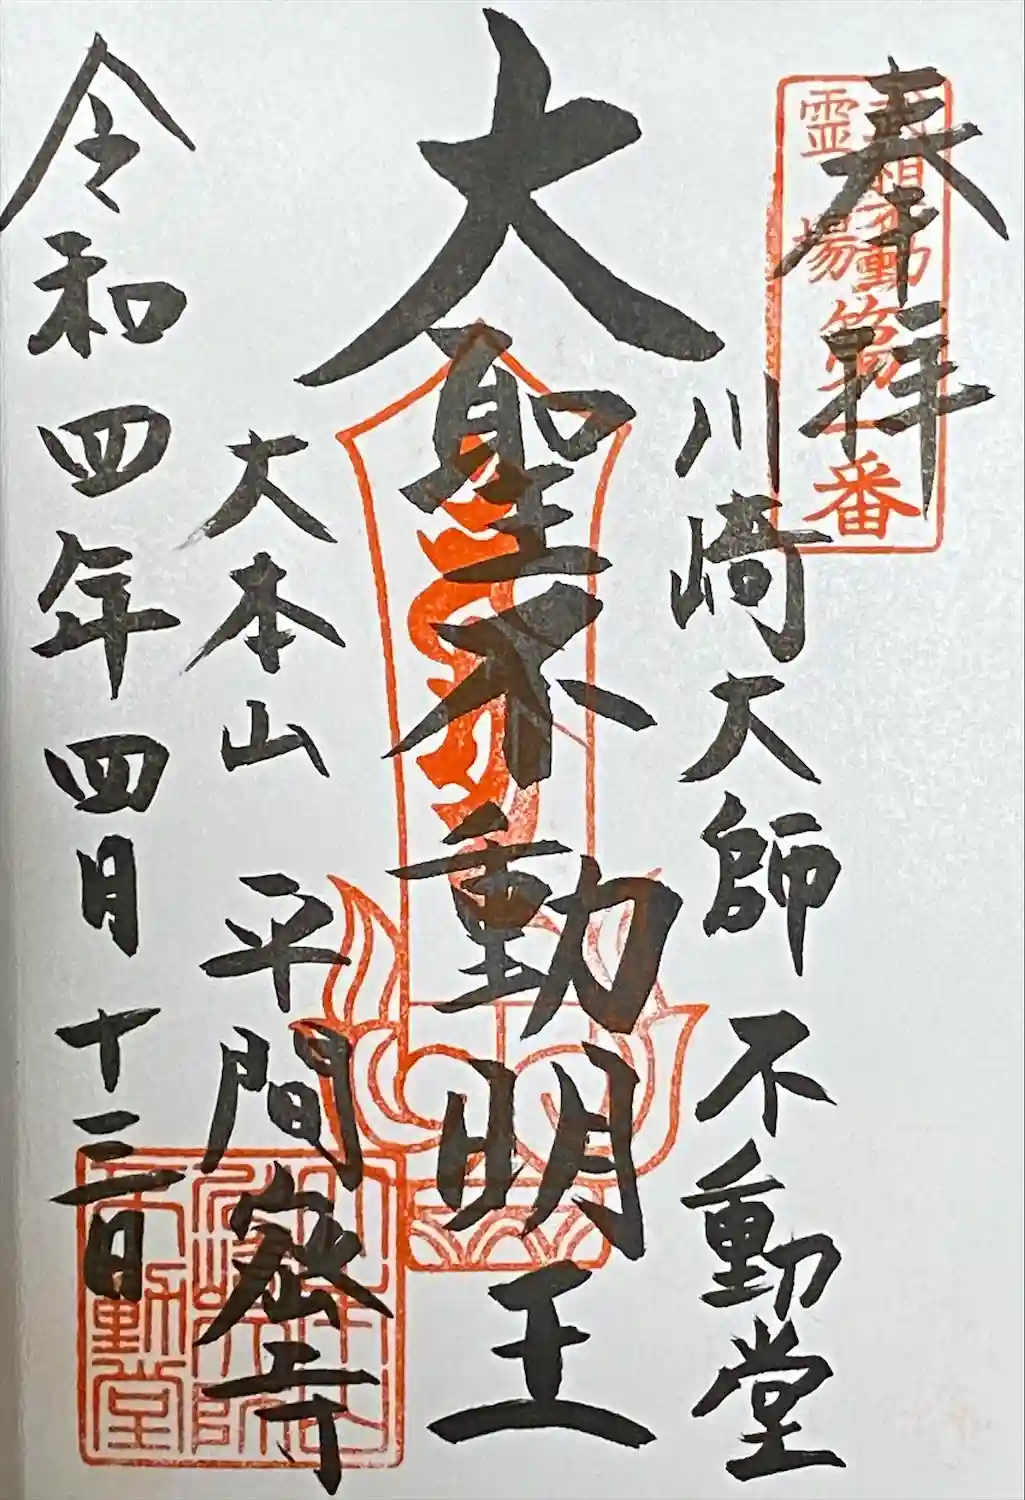 奉拝
武相不動
霊場
第一番
川崎大師 不動堂
大聖不動明王
大本山 平間寺
令和四年四月十三日
不動堂